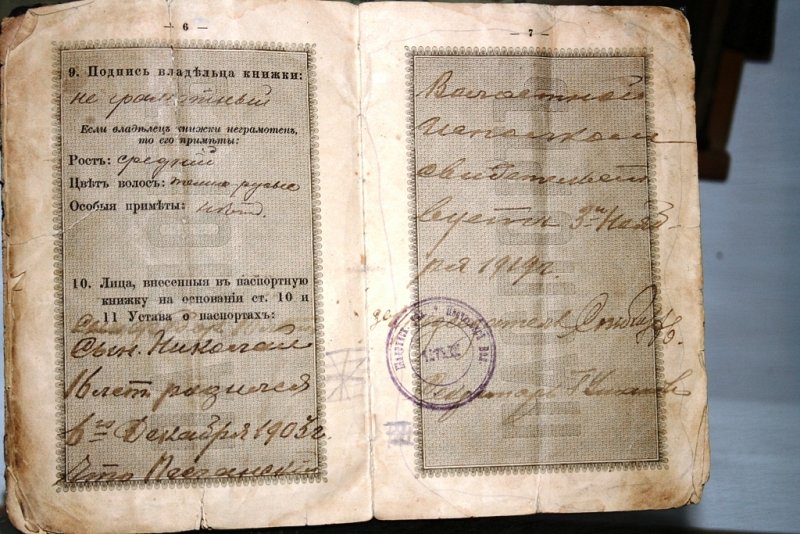 — 6 —
9. Подпись владѣльца книжки:
не грамотный
Если владѣлецъ книжки неграмотенъ,
то его примѣты:
Ростъ: средній
Цвѣтъ волосъ: темно русые
Особыя примѣты: нѣтъ
10. Лица, внесенныя въ паспортную
книжку на основаніи ст. 10 и
11 Устава о паспортахъ:
Сын. Николай
16 лет родился
6го Декабря 1903 г.
Что Песчанскій
— 7 —
Волостной
Исполком
свидетельст
вуетъ 3го Нояб-
ря 1919 г.
Секретарь